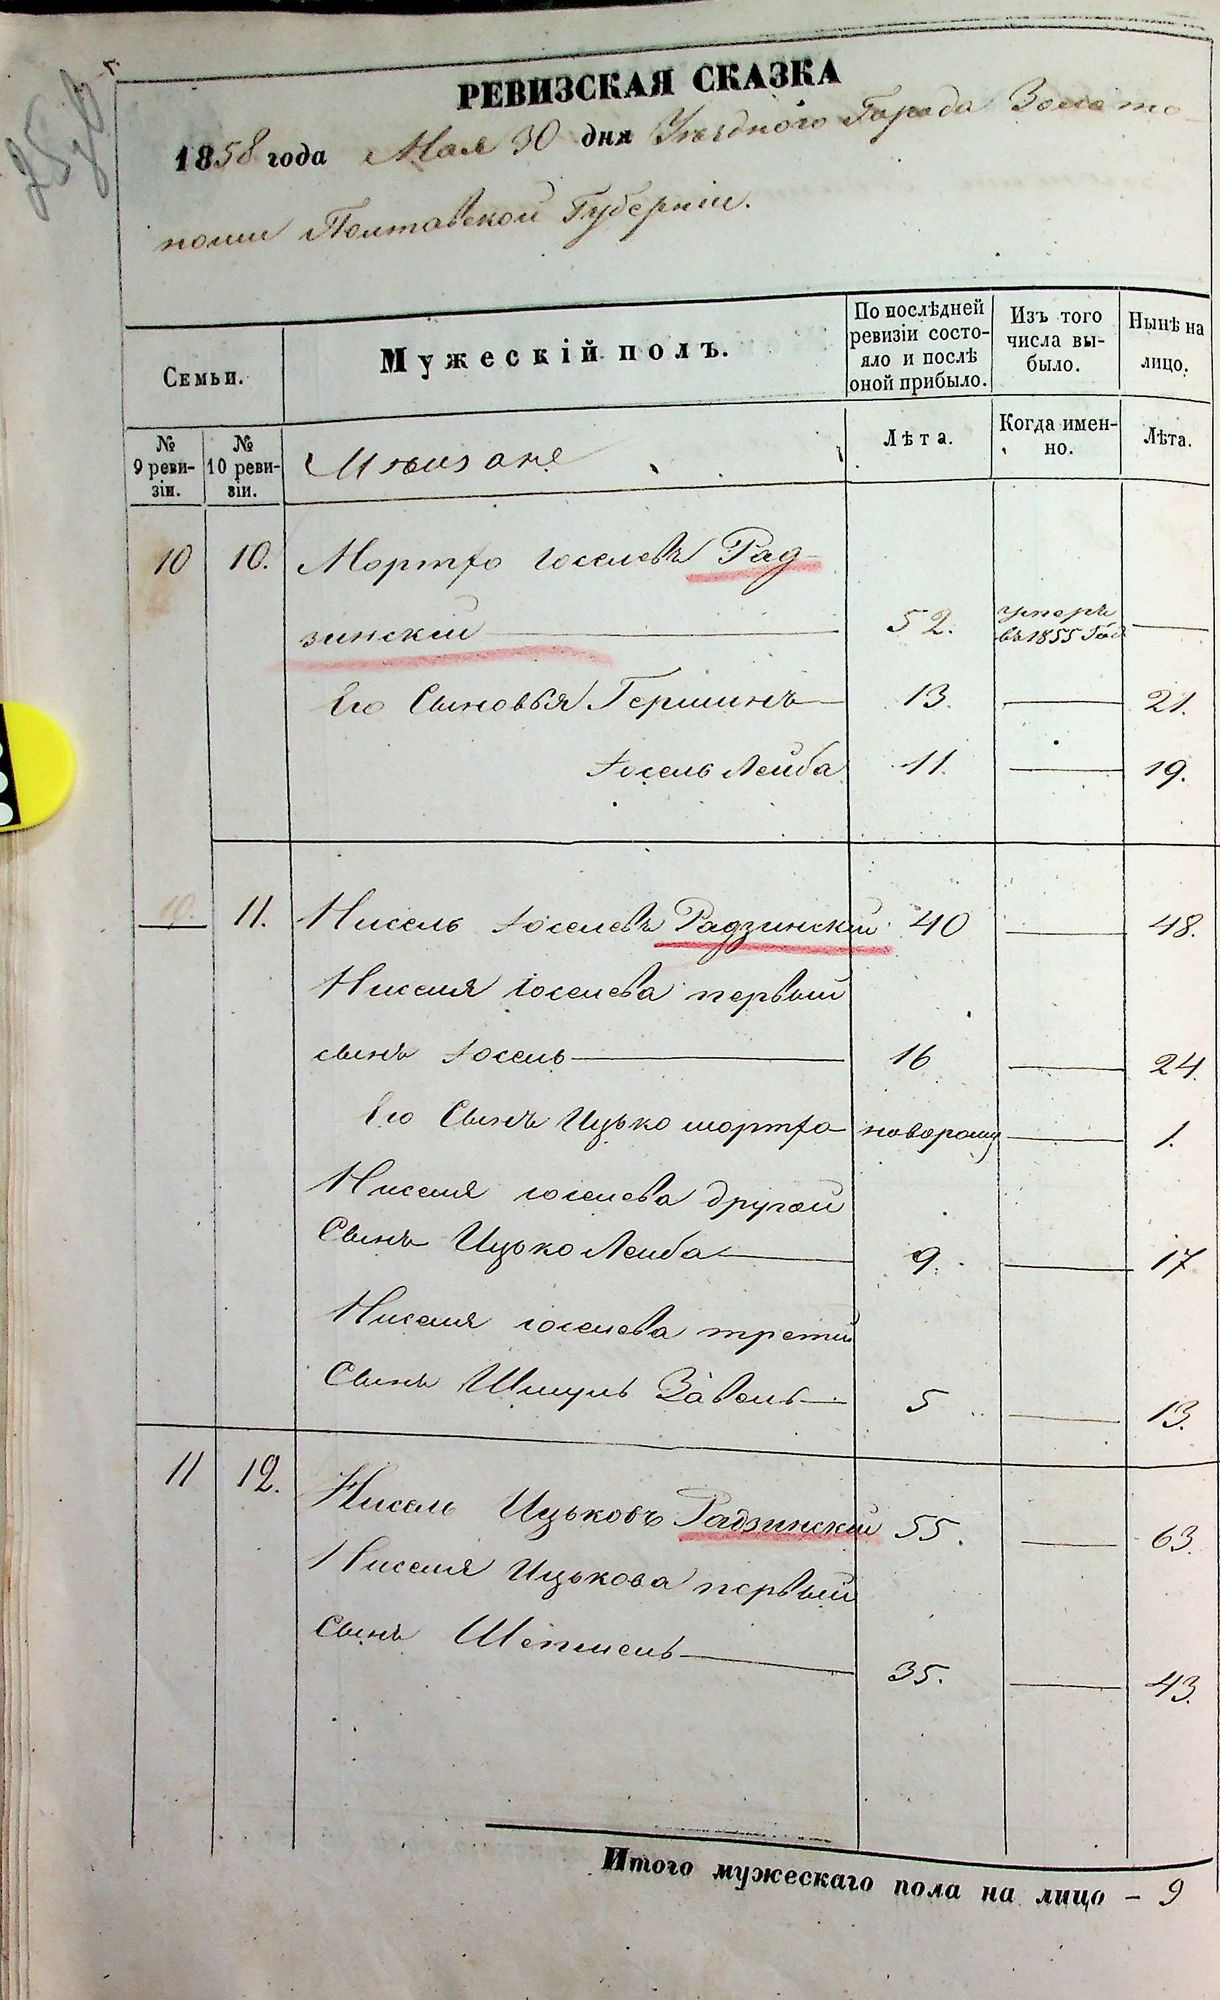 РЕВИЗСКАЯ СКАЗКА
1858 года Мая 30 дня Уѣзднаго Города Золото-
ноши Полтавской Губерніи.
Семьи.
Мужескій полъ.
По послѣдней ревизіи состо-
яло и послѣ оной прибыло.
Изъ того числа вы-
было.
Нынѣ на лицо.
№ 9 реви-
зіи.
№ 10 реви-
зіи.
Мѣщане
Лѣта.
Когда имен-
но.
Лѣта.
10 10. Мортхо Іоселевъ Рад-
зинскій 52. умеръ въ 1855 год
Его Сыновья Гершинъ 13. 21.
Іосель Лейба 11. 19.
10. 11. Нисель Іоселевъ Радзинскій 40 48.
Ниселя Іоселева первый
сынъ Іосель 16 24.
Его Сынъ Ицько мортхо новорожд 1.
Ниселя Іоселева другой
Сынъ Ицько Лейба 9. 17
Ниселя Іоселева третій
Сынъ Шмуль Завель 5 13.
11 12. Нисель Ицьковъ Радзинскій 55. 63.
Ниселя Ицькова первый
сынъ 35. 43.
Итого мужескаго пола на лицо - 9